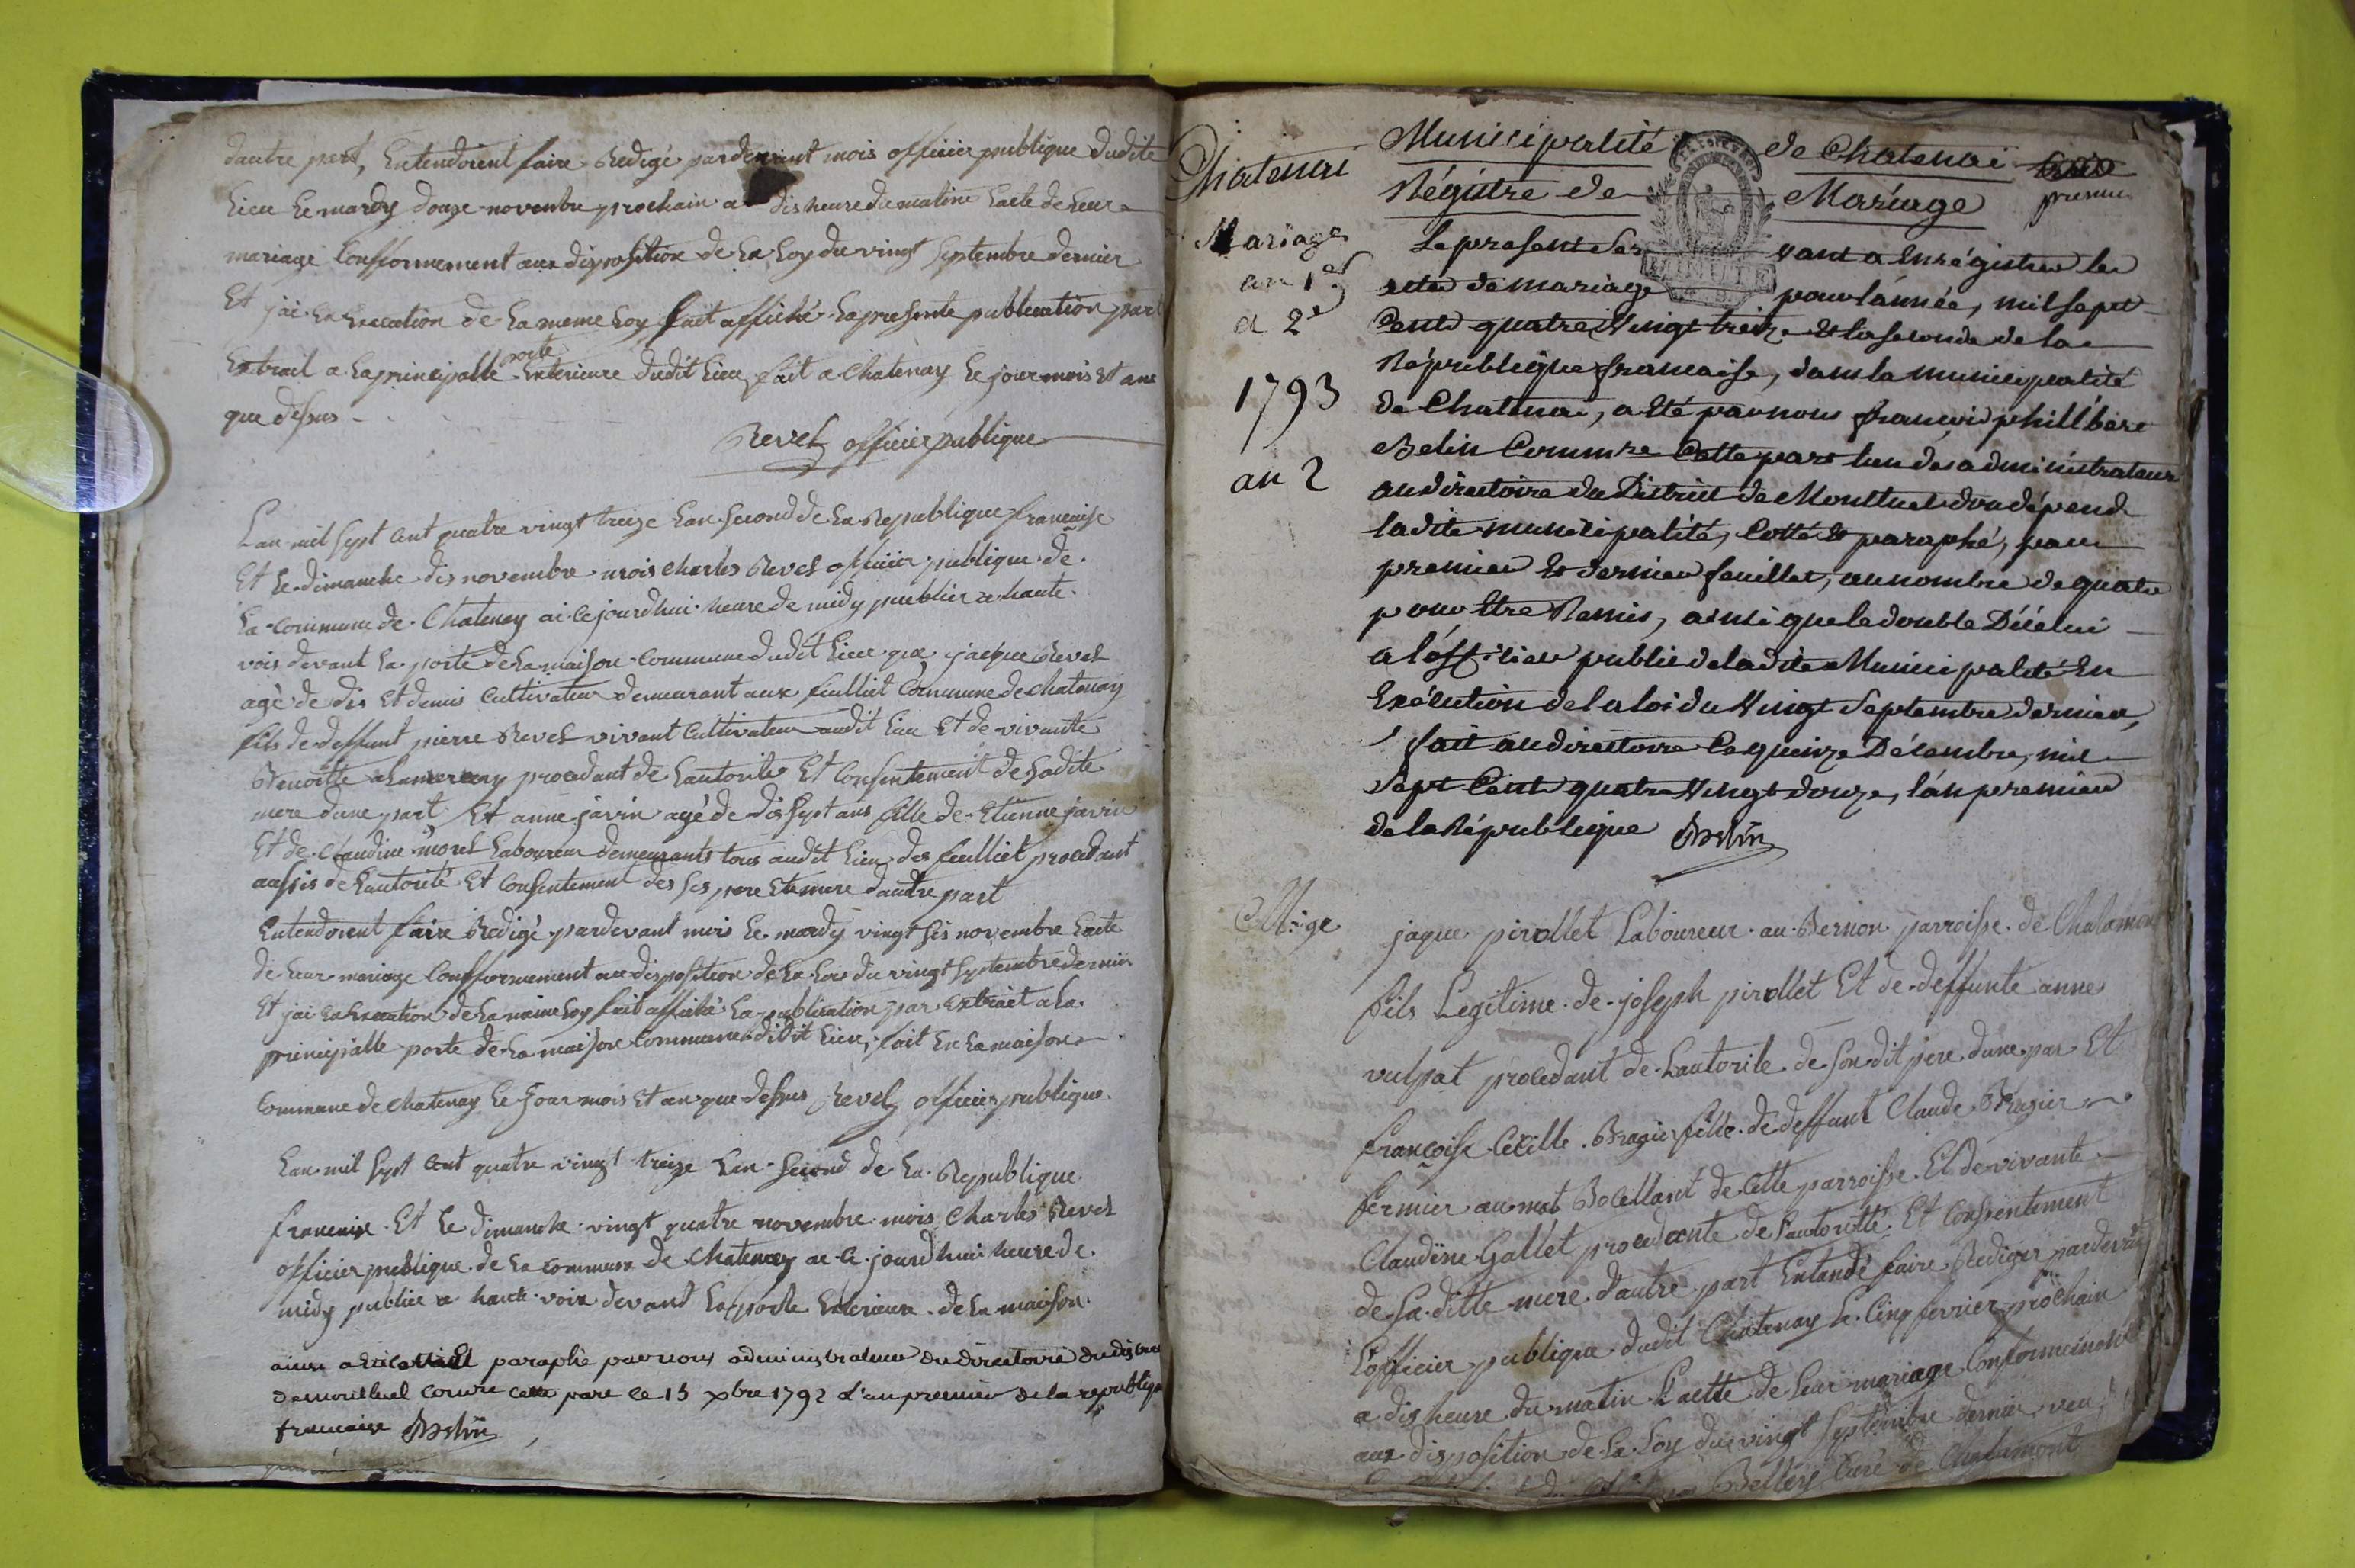 dautre part, Entendoient faire Redigé pardevant mois officier publique dudite
Lieu Le mardy douze novembre prochain a dis heure du matine Lacte de Leur
mariage Confformement aux disposition de La Loy du vingt septembre dernier
Et jai En Execution de La meme Loy fait affiché La presente publication par
Extrait a La principalle porte Exterieure dudit Lieu, fait a Chatenay Le jour mois Et ans
que dessus
Revel officier publique
Lan mil sept Cent quatre vingt treize Lan second de La Republique francaise
Et Le dimanche dis novembre mois charles Revel officier publique de
La commune de Chatenay ai Ce jourdhui heure de midy publier a haute
vois devant La porte de La maison Commune dudit Lieu que jacque Revel
agé de dis Et demis Cultivateur demeurant aux feulliet Commune de chatenay
fils de deffunt pierre Revel vivant Cultivateur audit Lieu Et de vivante
Benoitte procedant de Lautorite Et Consentement de sadite
mere dune part, Et anne javin agé de dis sept ans fille de Etienne javin
Et de Claudine morel Laboureur demeurants tous audit Lieu des feulliet procedant
aussis de Lautorité Et Consentement des ses pere Et mere dautre part
Entendoient faire Redigé pardevant mois Le mardy vingt sis novembre Lacte
de Leur mariage Confformement au disposition de La Loi du vingt septembre dernier
Et jai En Execution de La meme Loy fait affiché La publication par Extrait a La
principalle porte de La maison Commune didit Lieu, fait En La maison
Commune de chatenay Le jour mois Et an que dessus Revel officier publique
Lan mil sept Cent quatre vingt treize Lan second de La Republique
francaise Et Le dimanche vingt quatre novembre mois Charles Revel
officier publique de La commune de Chatenay ai Ce jourdhui heure de
midy publier a haute voix devant La porte Exterieure de La maison
ainsi a été paraphé par nous administrateur du directoire du district
de montluel comre cette part ce 15 xbre 1792 l'an premier de la republique
francaise Belin
Chatenai
Mariages
an 1er
et 2e
1793
an 2
Municipalité de Chatenai
premier
Régistre de Mariage
Le present servant a Enrégistrer les
actes de mariage pour l'année, mil sept
Cents quatre Vingt treize & la seconde de la
République francaise, dans la municipalité
de Chatenai, a été par nous françois phillibere
Belin Commre Cette part l'un des administrateurs
au directoire du District de Montluel dou dépend
ladite municipalité, Cotté & paraphé, par
premier & dernier feuillet, au nombre de quatre
pour Etre Remis, ainsi que le double D'icelui
a l'officier public de ladite Municipalité En
Exécution de la loi du Vingt Septembre dernier,
fait au directoire Ce quinze Décembre, mil
Sept Cents quatre Vingt douze, l'an premier
de la République Belin
jaque pirollet Laboureur au Bernon parroisse de Chalamont
fils Legitime de joseph pirollet Et de deffunte anne
vulpat procedant de Lautorite de son dit pere dune par Et
françoise Cecille Bragier fille de deffunt Claude Bragier
fermier au mat Bocellant de Cette parroisse Et de vivante
Claudine Gallet procedente de Lautoritté Et Consentement
de sa ditte mere dautre part Entande faire Rediger pardevant
Lofficier publique dudit Chatenay Le Cinq fevrier prochain
a dis heure du matin Lactte de Leur mariage Conformement
aux disposition de La Loy du vingt septembre dernier veu
Bellery Curé de Chalamont